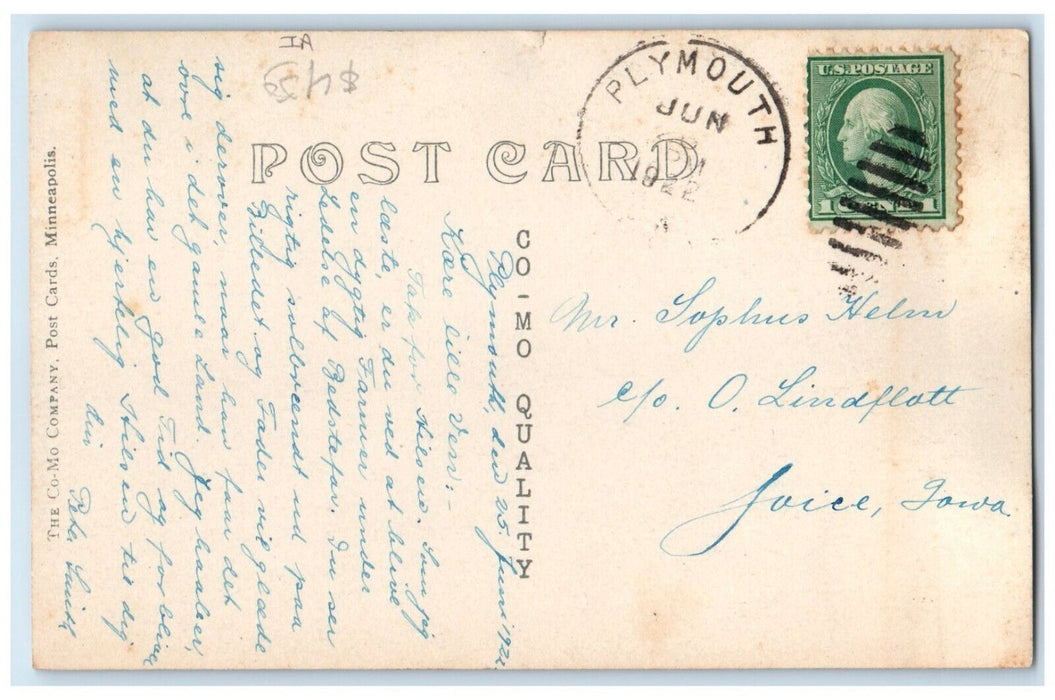 IA
$4.50
POST CARD
CO-MO QUALITY
THE CO-MO COMPANY, Post Cards, Minneapolis.
PLYMOUTH
JUN
1922
U.S. POSTAGE
1 CENT 1
Mr. Sophus Helm
c/o. O. Lindflott
Joice, Iowa.
Plymouth, den 25. Juni 1922.
Kære lille Ven; -
Tak for Hilsen. Som jeg
læste, er du ved at blive
en dygtig Farmer under
Ledelse af Bedstefar. Du ser
rigtig solbrændt ud paa
Billedet og Fader vil glæde
sig derover, naar han faar det
ovre i det gamle Land. Jeg haaber,
at du har en god Tid og forbliver
med en hjertelig Hilsen til dig
din
Smith